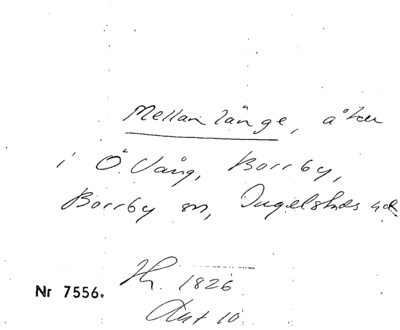 Mellan länge, åker
i Ö. Vång, Borrby,
Borrby sn, Ingelstads hd.
H. 1826
Nr 7556.
Akt 10